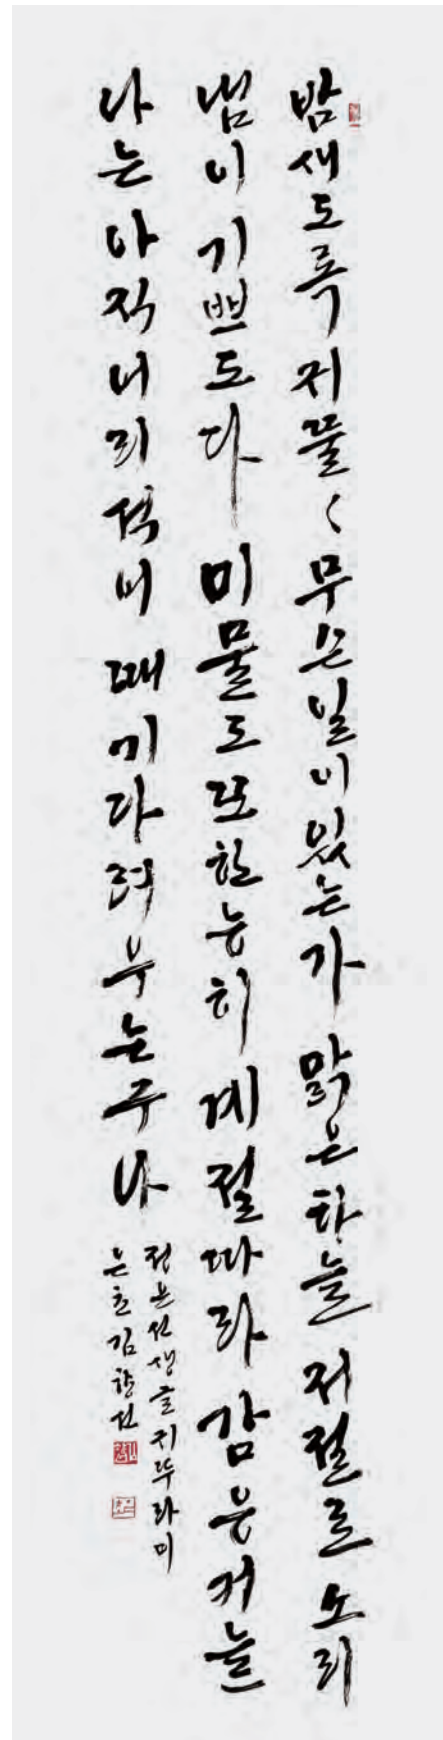 밤새도록 귀뚤〱 무슨일이있는가 맑은하늘 저절로 소리
냄이 기쁘도다 미물도 또한 능히 계절따라 감응커늘
나는 아직 어리석어 때 기다려 우는구나
선생글 귀뚜라미
은초 김향선